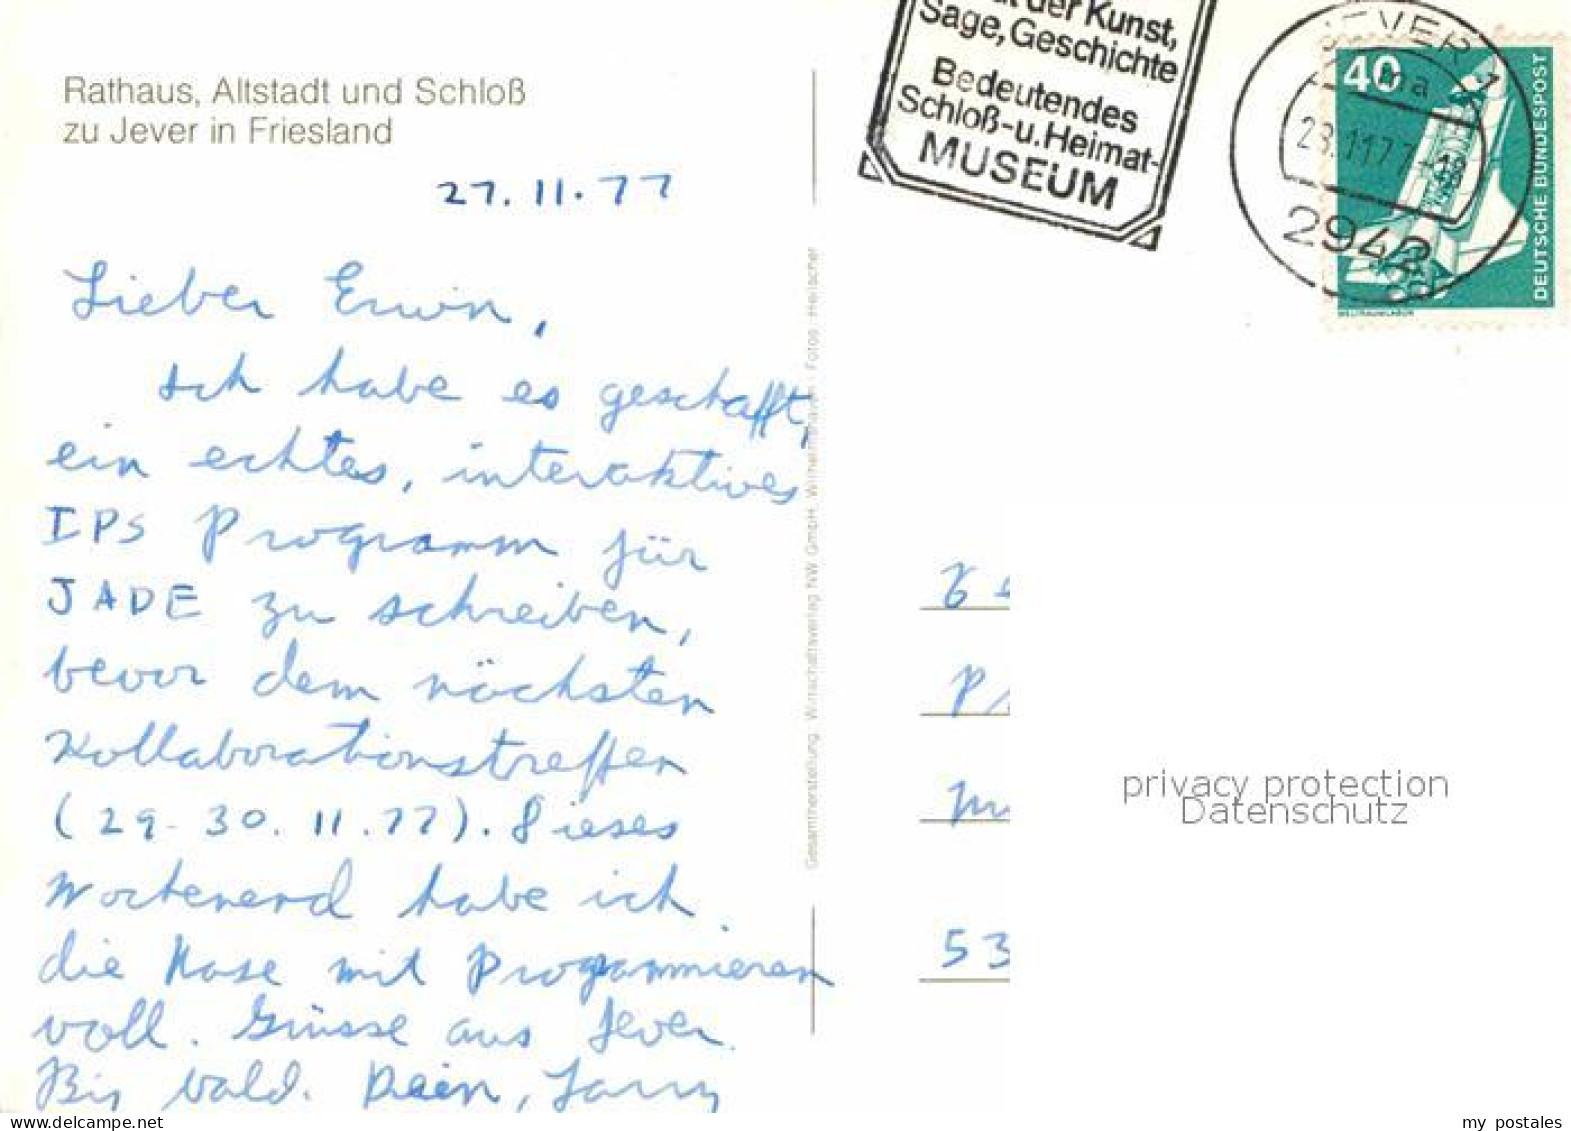 Rathaus, Altstadt und Schloß
zu Jever in Friesland
27.11.77
Lieber Erwin,
Ich habe es geschafft,
ein echtes, interaktives
IPS Programm für
JADE zu schreiben,
bevor dem nächsten
Kollaborationstreffen
(29-30.11.77). Dieses
Wochenend habe ich
die Nase mit Programmieren
voll. Grüsse aus Jever.
Bis bald. Dein, Larry
Gesamtherstellung: Wirtschaftsverlag NW GmbH, Wilhelmshaven · Fotos: Heilscher
der Kunst,
Sage, Geschichte
Bedeutendes
Schloß-u.Heimat-
MUSEUM
JEVER 1
ma
28.11.77-18
2942
40
DEUTSCHE BUNDESPOST
WELTRAUMLABOR
53
privacy protection
Datenschutz
my postales